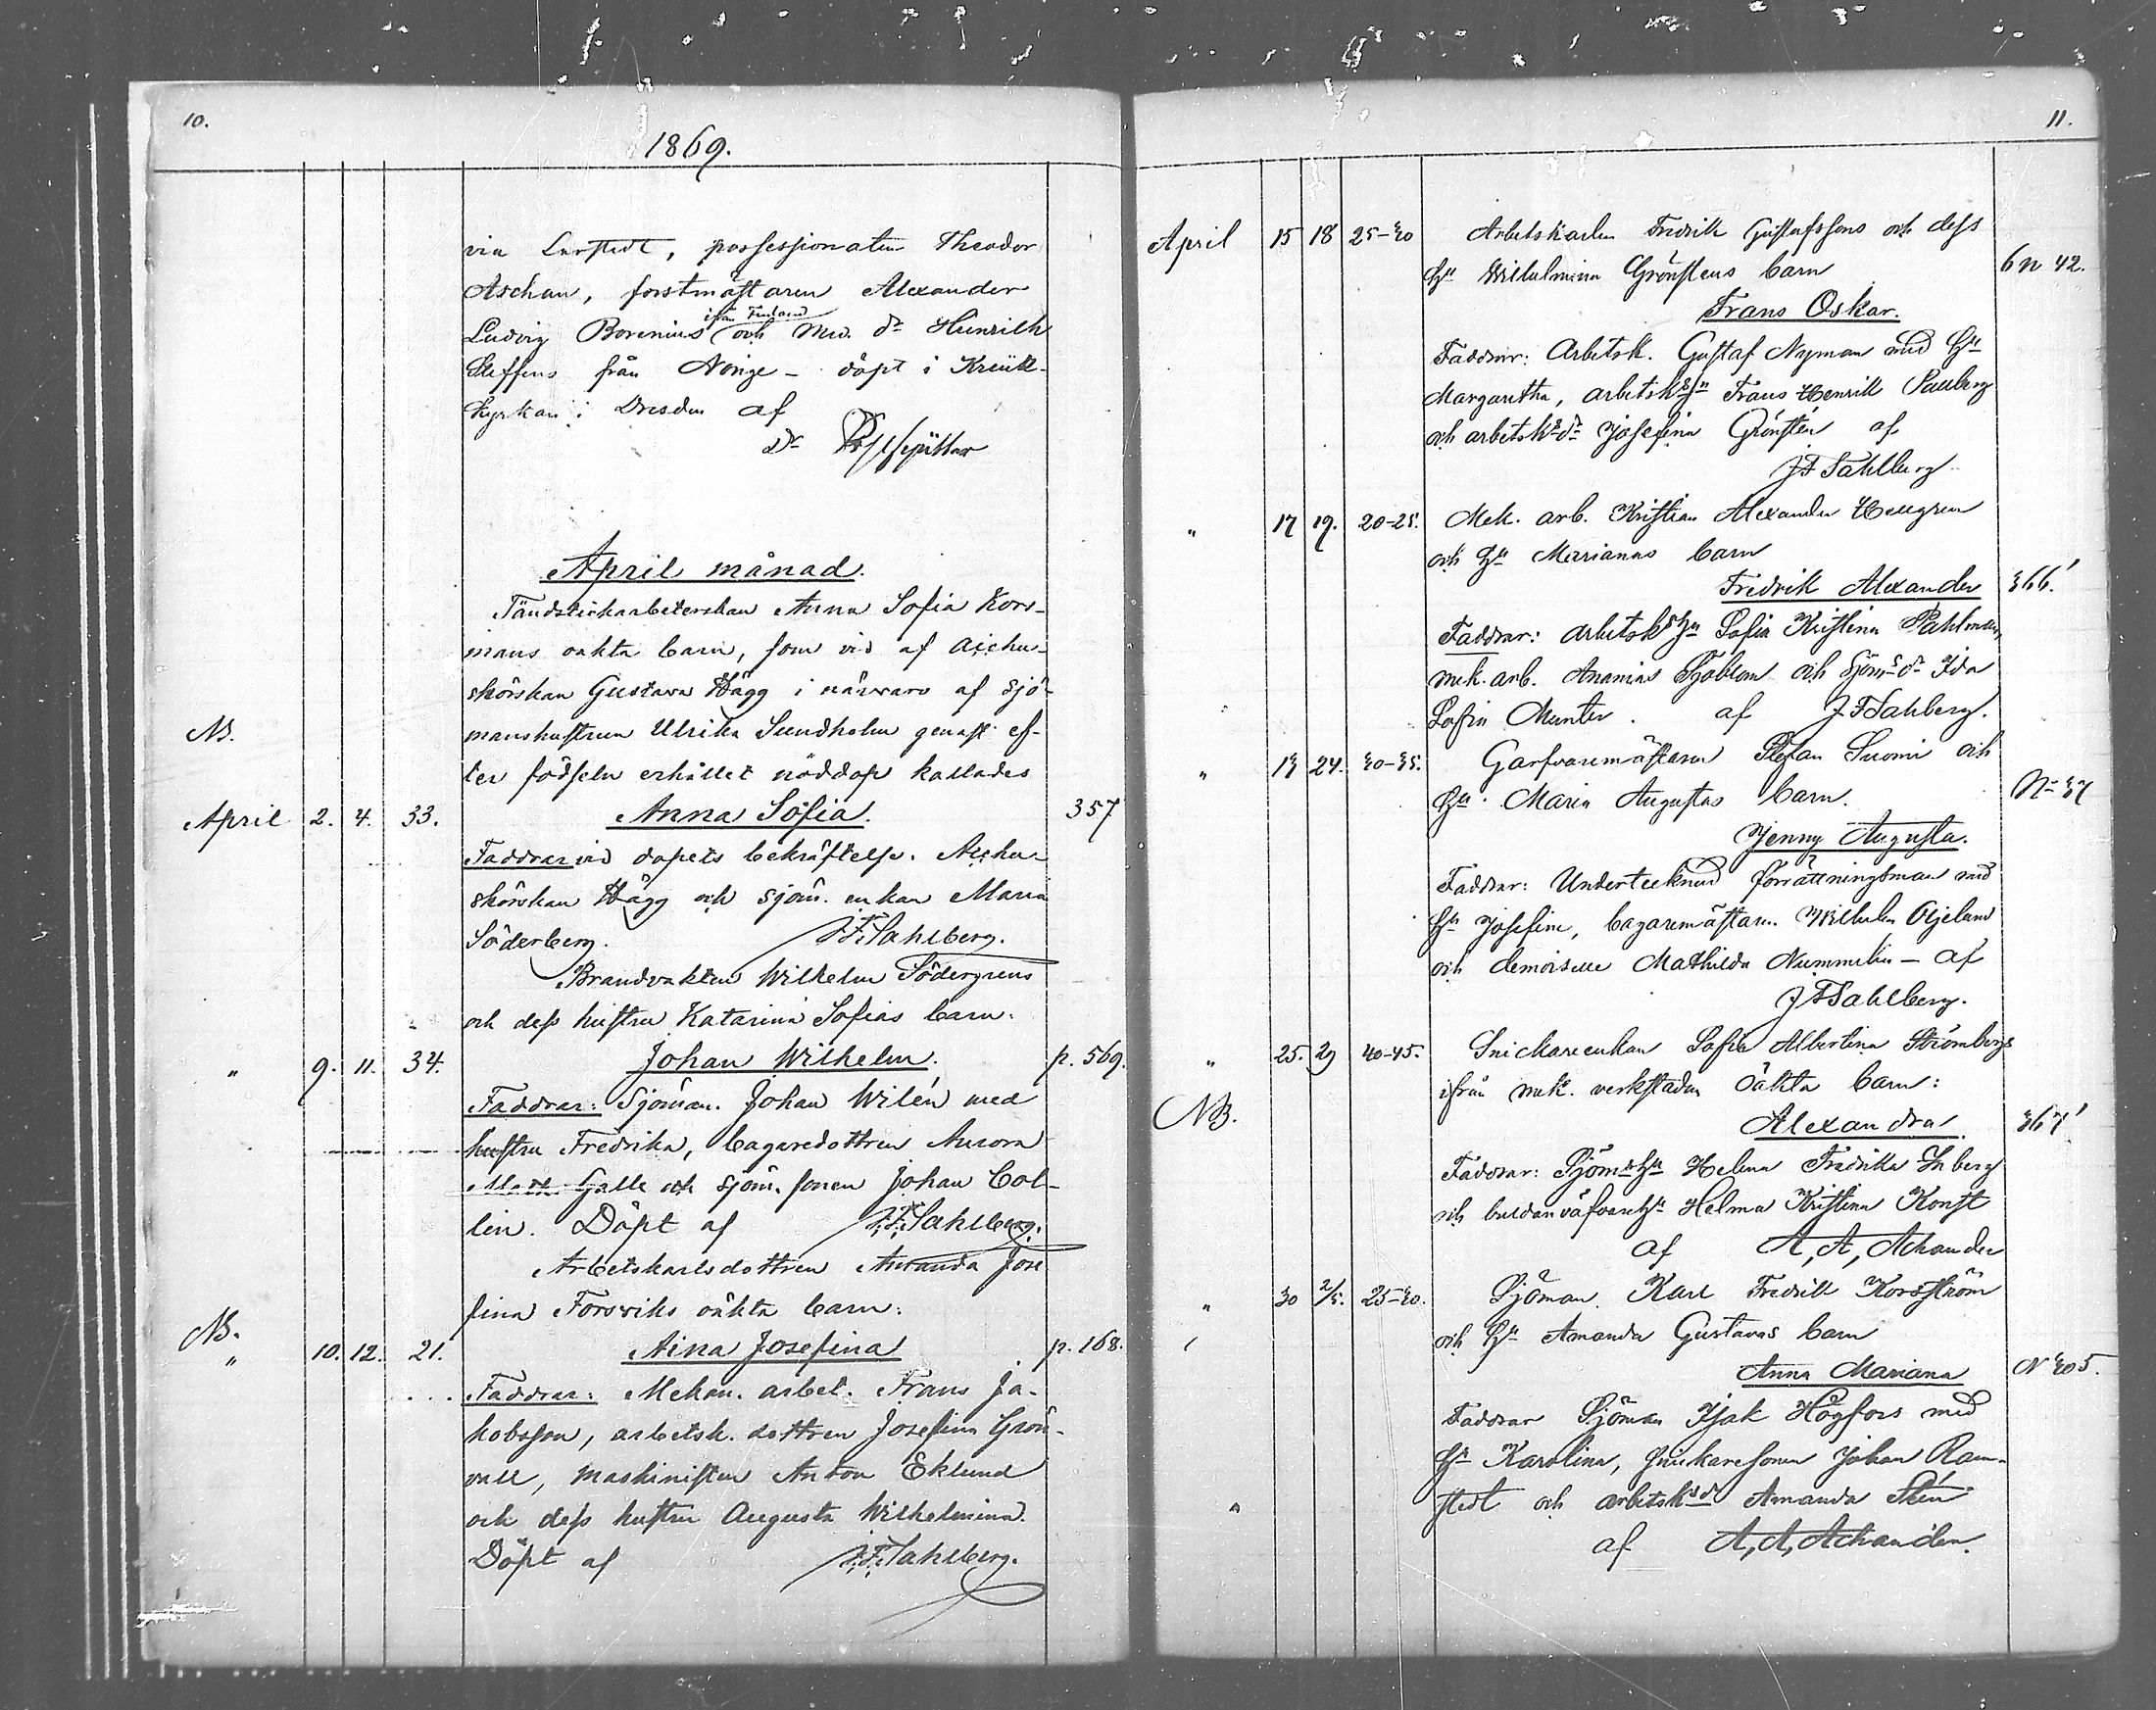 10.
1869.
via Lurstedt, possessionaten Theodor
Aschan, forstmästaren Alexander
ifrån Finland
Ludvig Borenius och Mrd. dr Heinrich
Steffens från Norige - döpt i Kreutz-
kyrkan i Dresden af
Dr
April månad.
Tändstickarbeterskan Anna Sofia Kors-
mans oäkta barn, som vid af acchu-
shörskan Gustava Hägg i närvaro af sjö-
NB.
manshustrun Ulrika Sundholm genast ef-
ter födseln erhållet nöddop kallades
April 2. 4. 33. Anna Sofia. 357
Faddrar vid dopets bekräftelse. Acchu-
shörskan Hägg och sjöm. enkan Maria
Söderberg. J.F. Sahlberg.
Brandvakten Wilhelm Södergrens
och dess hustru Katarina Sofias barn.
" 9. 11. 34. Johan Wilhelm. p. 569.
Faddrar: Sjöman. Johan Wilén med
hustru Fredrika, bagaredottren Aurora
Math. Galle och sjöm. sonen Johan Col-
lin. Döpt af J.F. Sahlberg.
Arbetskarlsdottren Amanda Jose
fina Forsviks oäkta barn:
NB.
" 10. 12. 21. Aina Josefina p. 168.
Faddrar: Mekan. arbet. Frans Ja-
kobsson, arbetsk. dottren Josefina Grön-
vall, maskinisten Anton Eklund
och dess hustru Augusta Wilhelmina.
Döpt af J.F. Sahlberg.
11.
April 15 18 25-30 Arbetskarlen Fredrik Gustafssons och dess
hu Wilhelmina Grönstens barn 6 n 42.
Frans Oskar.
Faddrar: Arbetsk. Gustaf Nyman med hu
Margaretha, arbetsk. sn Frans Henrik Pallberg
och arbetsk. dr Josefina Grönstén af
J F Sahlberg
" 17 19. 20-25. Mek. arb. Kristian Alexander Hellgren
och hu Marianas barn
Fredrik Alexander 366.
Faddrar: arbetsk hu Sofia Kristina Påhlman,
mek. arb. Ananias Sjöblom och sjöm. dr Ida
Sofia Munter. af J F Sahlberg.
" 13 24. 30-35. Garfvaremästaren Stefan Suomi och
hu. Maria Augustas barn. No 37
Jenny Augusta.
Faddrar: Undertecknad förrättningsman med
hu Josefine, bagaremästaren Wilhelm Ojeland
och demoiselle Mathilda Nummelin - af
J F Sahlberg.
" 25. 29 40-45. Snickareenkan Sofia Albertina Strömbergs
ifrån mek. verkstaden Oäkta barn:
NB.
Alexandra. 367
Faddrar: Sjöm. hu Helena Fredrika Enberg
och buldanväfvare hu Helma Kristina Konst
af A, A, Achander
" 30 2/5. 25-30. Sjöman. Karl Fredrik Korsström
och hu Amanda Gustavas barn
Anna Mariana N 305.
Faddrar Sjöman Isak Högfors med
hu Karolina, snickaresonen Johan Ram-
" stedt och arbetsk. dr Amanda Stén
af A, A, Achander.